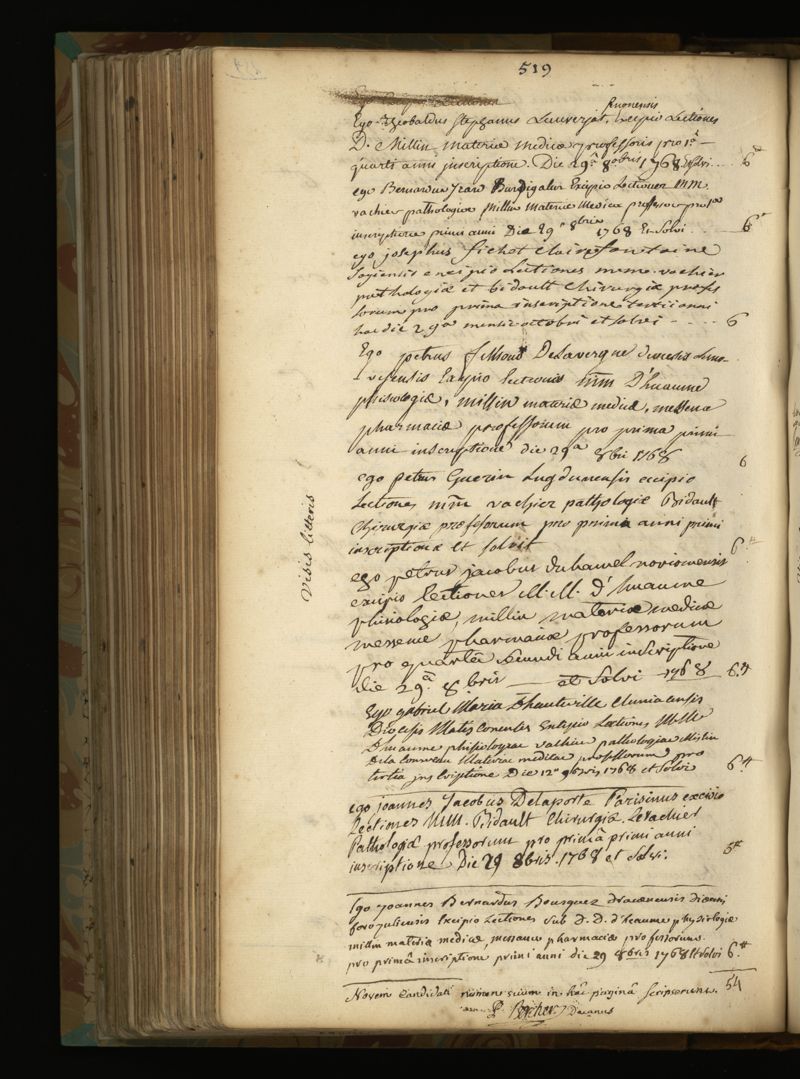 519
Ego Theobaldus Stephanus Lauverjat, Ruonensis excipio Lectiones
D. Millin materiæ medicæ professoris pro 1ª
quarti anni inscriptione. Die 29ª 8obris 1768 et solvi .. 6
ego Bernardus Burdigalus Excipio Lectiones mm.
vachier pathologiæ Millin Materiæ Medicæ professor pro 1ª
inscriptione primi anni Die 29ª 8bris 1768 Et Solvi .. 6
ego josephus fichot clairefontaine
excipio Lectiones mm. vachier
pathologiæ et bidault chirurgiæ profes
sorum pro prima inscriptione tertii anni
hac die 29ª mensis octobri et solvi - .... 6
Ego petrus Delavergne diœcesis Limo
vicensis Excipio lectiones mm D'huaume
phisiologiæ, millin materiæ medicæ, messena
pharmaciæ professorum pro prima primi
anni inscriptione die 29ª 8bri 1768 6
ego petrus Guerin Lugdunensis excipio
Lectiones mm vachier pathologiæ Bidault
chirurgiæ professorum pro prima anni primi
inscriptione et solvit 6
visis litteris
ego petrus jacobus duhamel noviomensis
excipio lectiones M. M. d'huaume
phisiologiæ, millin materiæ medicæ
messene pharmaciæ professorum
pro quarta secundi anni inscriptione
die 29ª 8bris et solvi 1768 6
Ego gabriel Maria Dhauteville Cluniacensis
Diocesis Excipio Lectiones
D'huaume phisiologiæ vachier pathologiæ Millin
Materiæ medicæ professorum pro
tertia inscriptione Die 12ª 9bris 1768 et solvi 6
ego joannes Jacobus Delaporte Parisinus excipio
Lectiones MM. Bidault Chirurgiæ. Levachier
Pathologiæ professorum pro primâ primi anni
inscriptione Die 29 8bris. 1768 et solvi.
Ego Joannes Bernardus Bousquez dracœnensis diœcesis
forojuliensis Excipio Lectiones sub D. D. d'heaume physiologiæ
millin materiæ medicæ, messance pharmaciæ professorum.
pro primâ inscriptione primi anni die 29 8bris 1768 et solvi 6
Novem Candidati nomen suum in hâc paginâ scripserunt. 54
Decanus